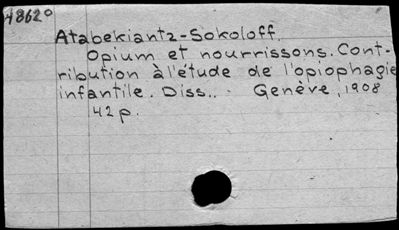 48620
Atabekiantz-Sokoloff.
Opium et nourrissons. Cont-
ribution à l'étude de l'opiophagie
infantile. Diss.. - Genève, 1908
42 p.